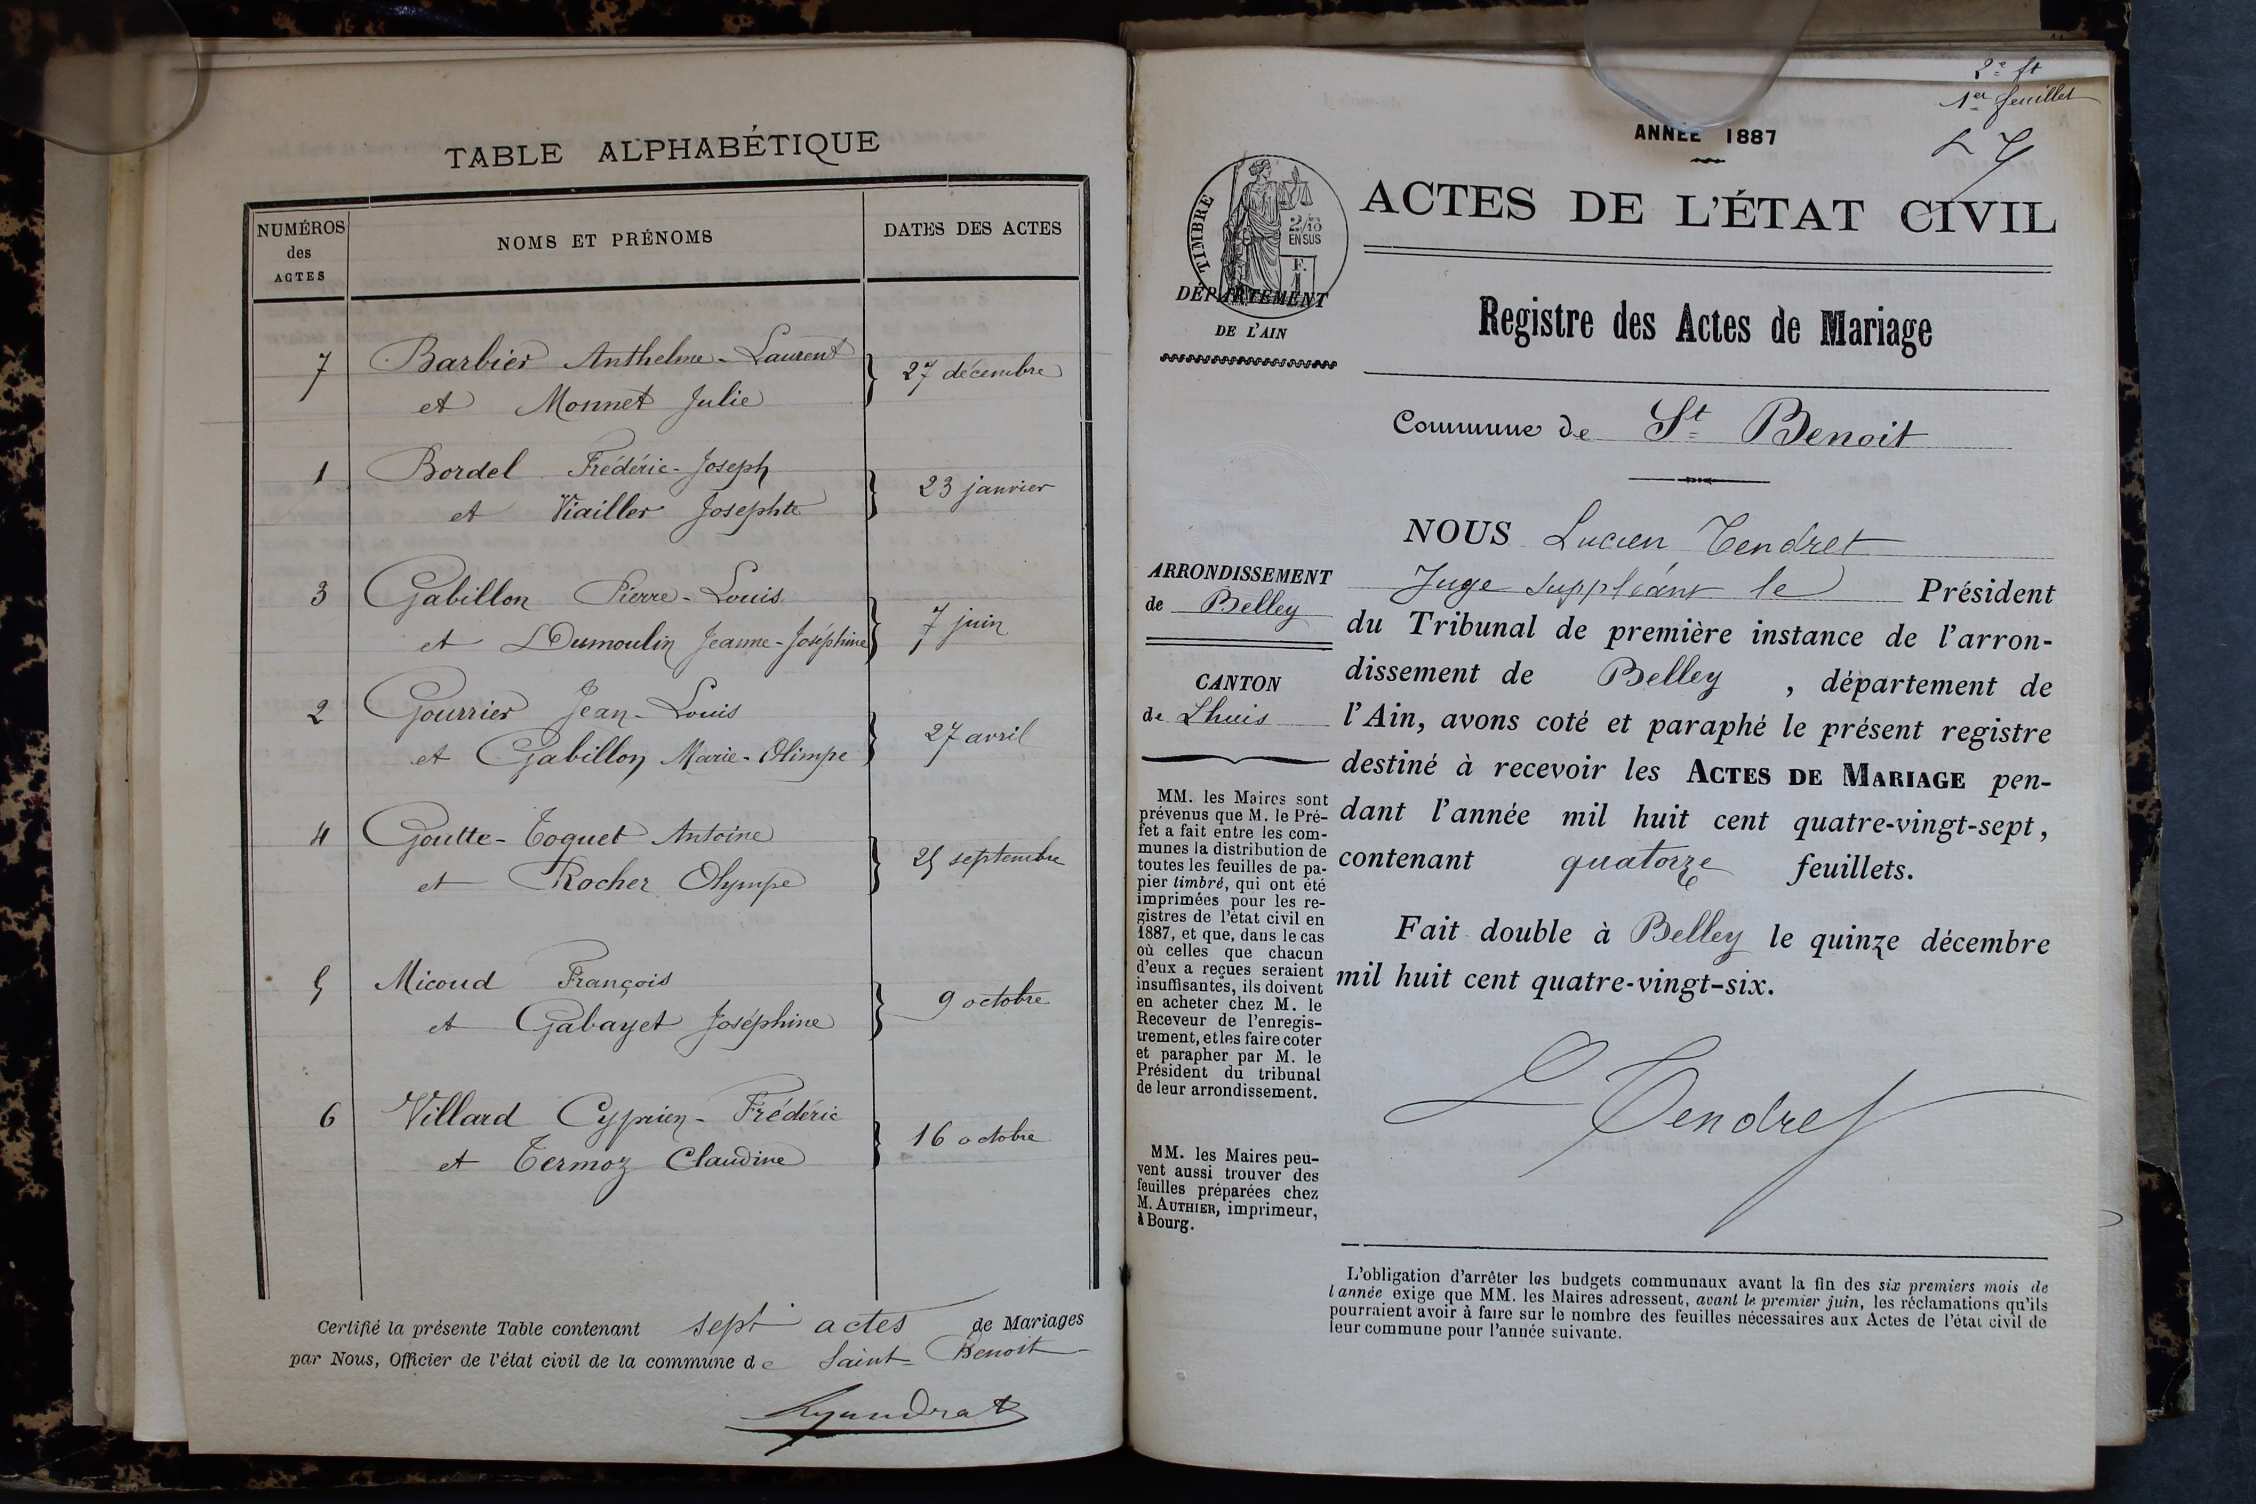 TABLE ALPHABÉTIQUE
NUMÉROS
des
ACTES
NOMS ET PRÉNOMS
DATES DES ACTES
7 Barbier Anthelme-Laurent
et Monnet Julie
27 décembre
1 Bordel Frédéric-Joseph
et Viailler Josephte
23 janvier
3 Gabillon Pierre-Louis
et Dumoulin Jeanne-Joséphine
7 juin
2 Gourrier Jean-Louis
et Gabillon Marie-Olimpe
27 avril
4 Goutte-Toquet Antoine
et Rocher Olympe
25 septembre
5 Micoud François
et Gabayet Joséphine
9 octobre
6 Villard Cyprien-Frédéric
et Termoz Claudine
16 octobre
Certifié la présente Table contenant sept actes de Mariages
par Nous, Officier de l'état civil de la commune de Saint-Benoit
2e ft
1er feuillet
ANNÉE 1887
TIMBRE
2/10
EN SUS
F.
1
DÉPARTEMENT
DE L'AIN
ACTES DE L'ÉTAT CIVIL
Registre des Actes de Mariage
Commune de St Benoit
ARRONDISSEMENT
de Belley
CANTON
de Lhuis
MM. les Maires sont
prévenus que M. le Pré-
fet a fait entre les com-
munes la distribution de
toutes les feuilles de pa-
pier timbré, qui ont été
imprimées pour les re-
gistres de l'état civil en
1887, et que, dans le cas
où celles que chacun
d'eux a reçues seraient
insuffisantes, ils doivent
en acheter chez M. le
Receveur de l'enregis-
trement, et les faire coter
et parapher par M. le
Président du tribunal
de leur arrondissement.
MM. les Maires peu-
vent aussi trouver des
feuilles préparées chez
M. AUTHIER, imprimeur,
à Bourg.
NOUS Lucien Tendret
Juge suppléant le Président
du Tribunal de première instance de l'arron-
dissement de Belley , département de
l'Ain, avons coté et paraphé le présent registre
destiné à recevoir les ACTES DE MARIAGE pen-
dant l'année mil huit cent quatre-vingt-sept,
contenant quatorze feuillets.
Fait double à Belley le quinze décembre
mil huit cent quatre-vingt-six.
L Tendret
L'obligation d'arrêter les budgets communaux avant la fin des six premiers mois de
l'année exige que MM. les Maires adressent, avant le premier juin, les réclamations qu'ils
pourraient avoir à faire sur le nombre des feuilles nécessaires aux Actes de l'état civil de
leur commune pour l'année suivante.